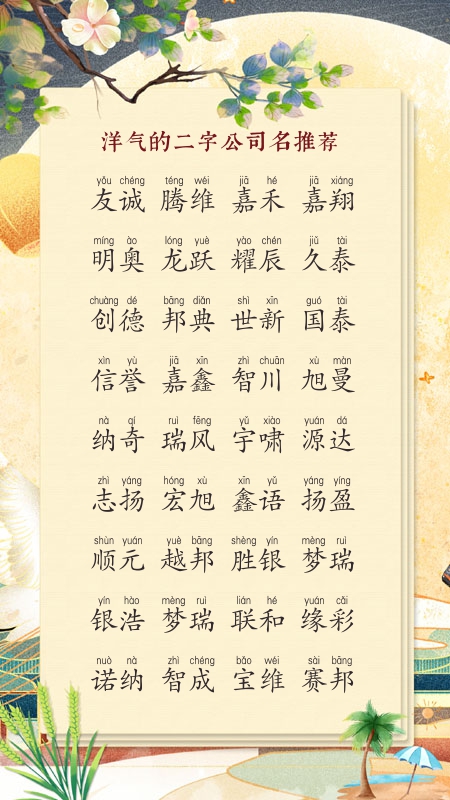 洋气的二字公司名推荐
yǒu chéng téng wéi jiā hé jiā xiáng
友诚 腾维 嘉禾 嘉翔
míng ào lóng yuè yào chén jiǔ tài
明奥 龙跃 耀辰 久泰
chuàng dé bāng diǎn shì xīn guó tài
创德 邦典 世新 国泰
xìn yù jiā xīn zhì chuān xù màn
信誉 嘉鑫 智川 旭曼
nà qí ruì fēng yǔ xiào yuán dá
纳奇 瑞风 宇啸 源达
zhì yáng hóng xù xīn yǔ yáng yíng
志扬 宏旭 鑫语 扬盈
shùn yuán yuè bāng shèng yín mèng ruì
顺元 越邦 胜银 梦瑞
yín hào mèng ruì lián hé yuán cǎi
银浩 梦瑞 联和 缘彩
nuò nà zhì chéng bǎo wéi sài bāng
诺纳 智成 宝维 赛邦